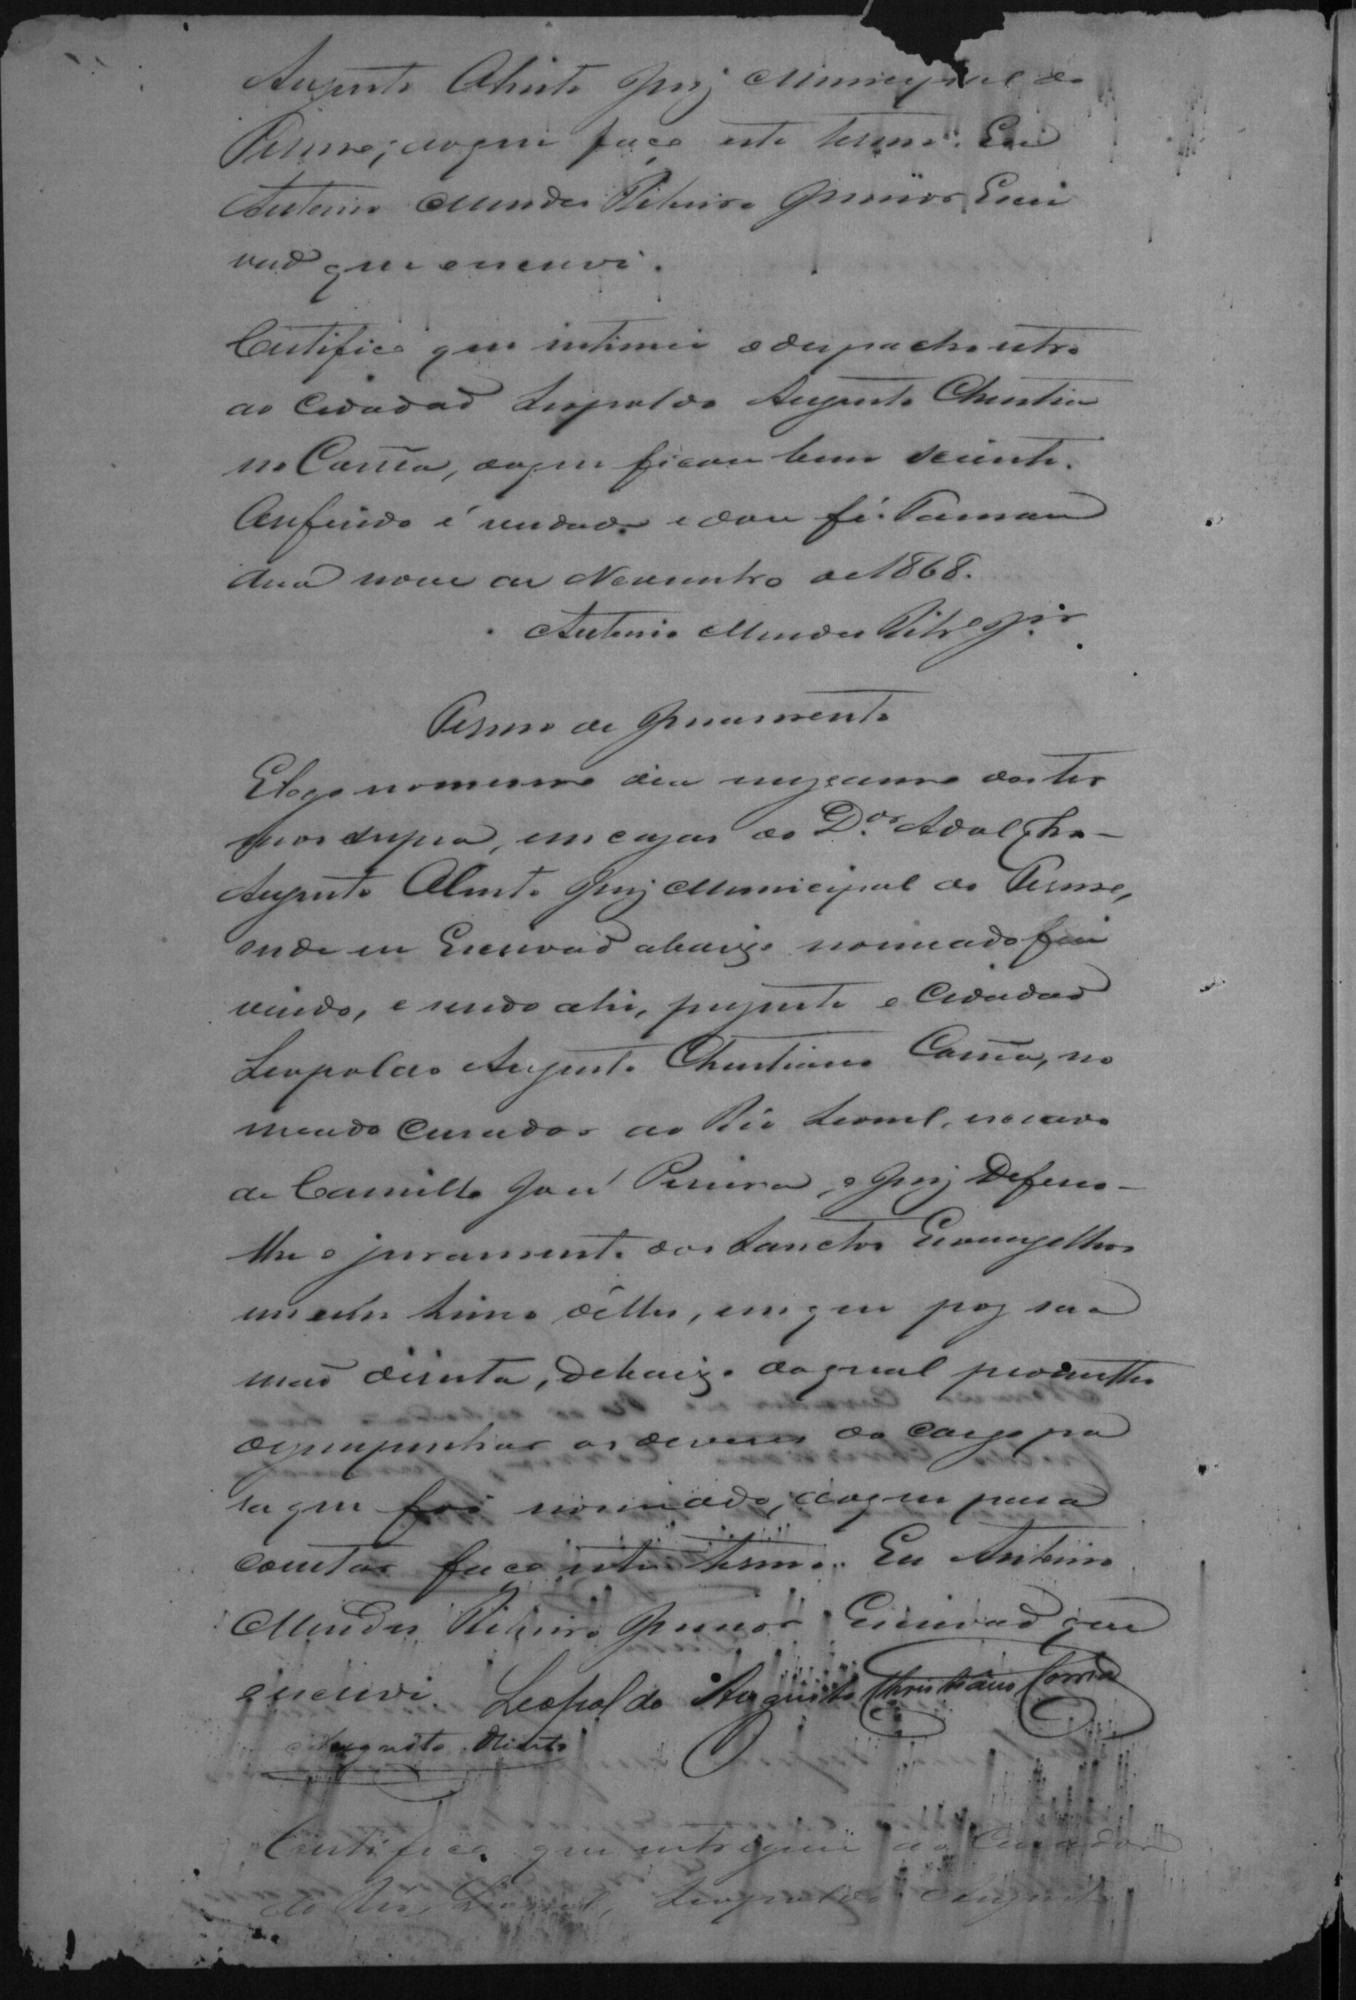 Augusto Olinto Juiz Municipal do
Termo; do que faço este termo. Eu
Antonio Mendes Ribeiro Junior Escri
vaõ que escrevi.
Certifico que intimei o despacho retro
ao Cidadaõ Leopoldo Augusto Christia
no Corrêa, do que ficou bem sciente.
O referido é verdade e dou fé. Taman
duá nove de Novembro de 1868.
Antonio Mendes Ribro Jor
Termo de Juramento
E logo no mesmo dia mez e anno do ter
mo supra, em cazas do Dor Adolpho
Augusto Olinto Juiz Municipal do Termo,
onde eu Escrivaõ abaixo nomeado fui
vindo, e sendo ahi, prezente o Cidadaõ
Leopoldo Augusto Christiano Corrêa, no
meado Curador ao Réo Leonel, escravo
de Camillo José Pereira, o Juiz Deferio
lhe o juramento dos Sanctos Evangelhos
em um livro délles, em que poz sua
maõ direita, debaixo do qual prometteo
dezempenhar os deveres do cargo pa
ra que foi nomiado, do que para
constar faço este termo. Eu Antonio
Mendes Ribeiro Junior Escrivaõ que
escrevi. Leopoldo Augusto Christiano Corrêa
Augusto Olinto
Certifico que entreguei ao Curador
do Réo Leonel, Leopoldo Augusto